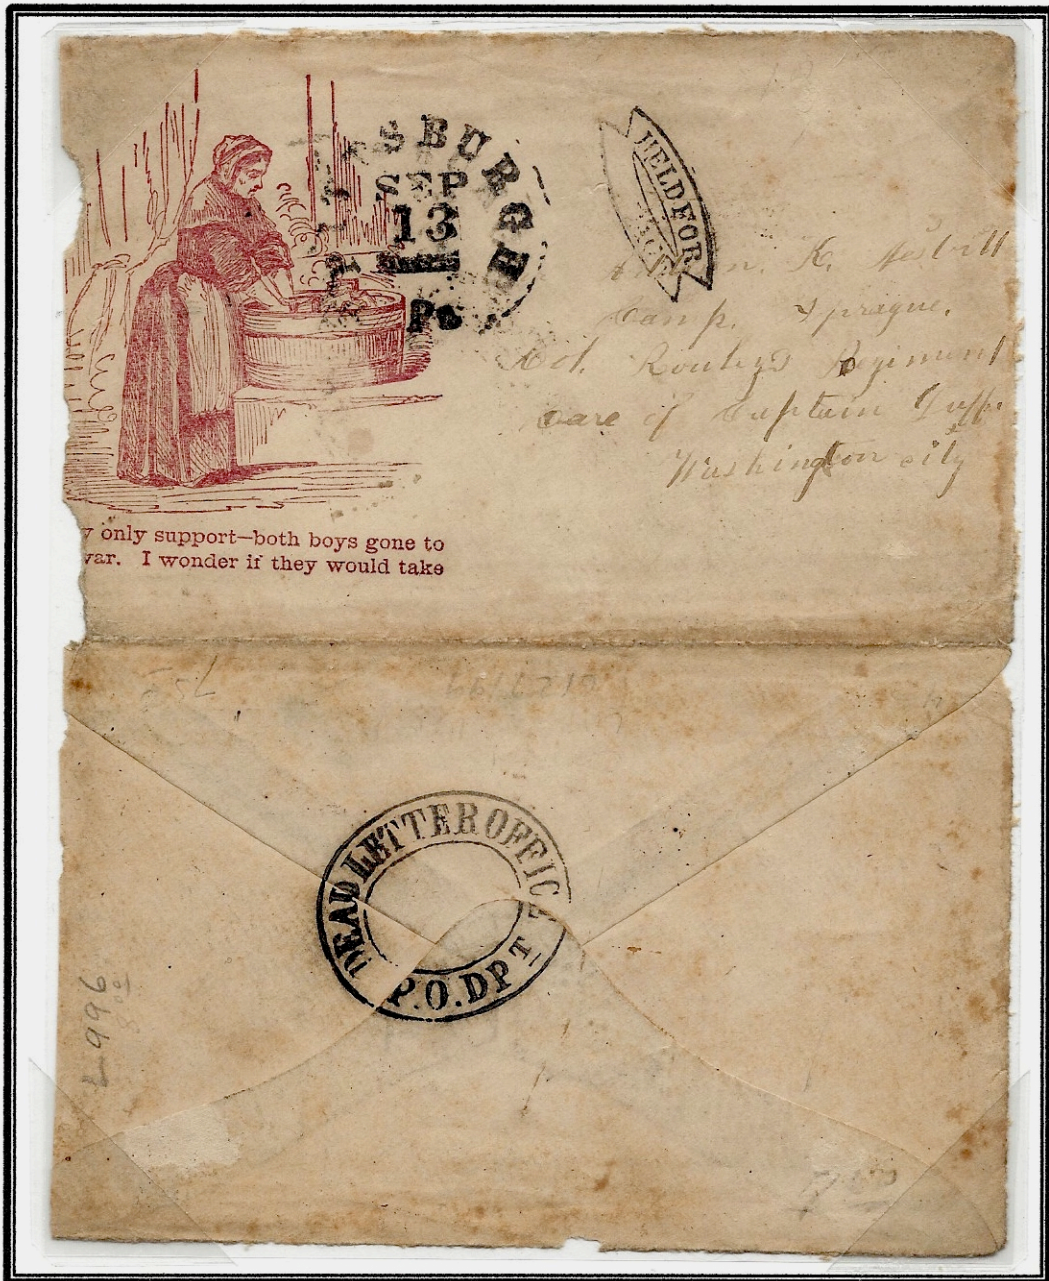 SBURGH
SEP
13
Pa
HELD FOR
K.
Camp. Sprague.
Col. Rowley's Regiment
Care of Captain
Washington city
only support—both boys gone to
war. I wonder if they would take
DEAD LETTER OFFIC
P.O.DPT